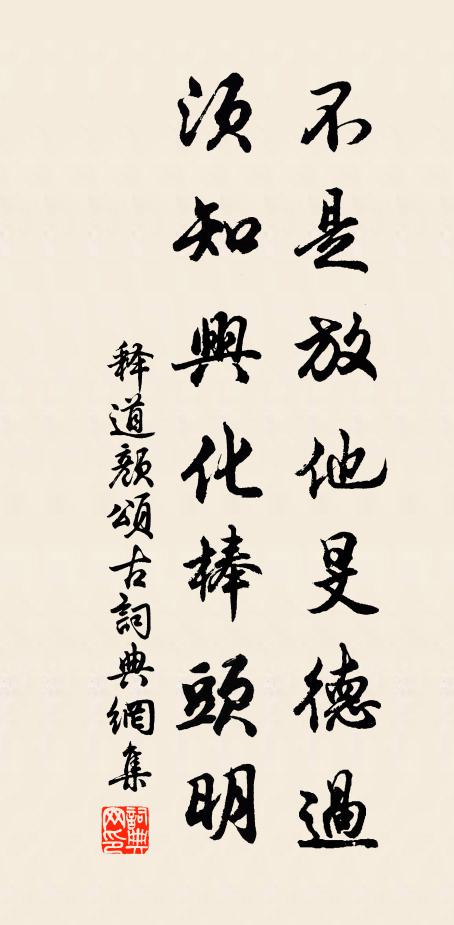 不是放他旻德過
須知興化棒頭明
释道颜頌古詞典網集
詞典網印